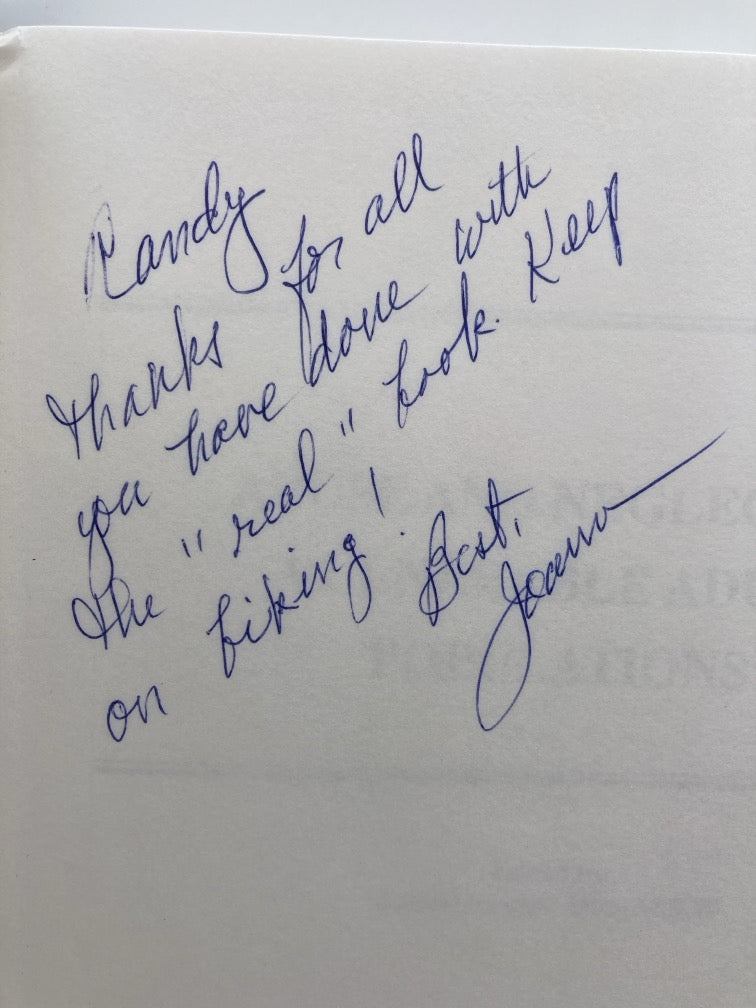 Randy
Thanks for all
you have done with
the "real" book. Keep
on biking! Best,
Joanne